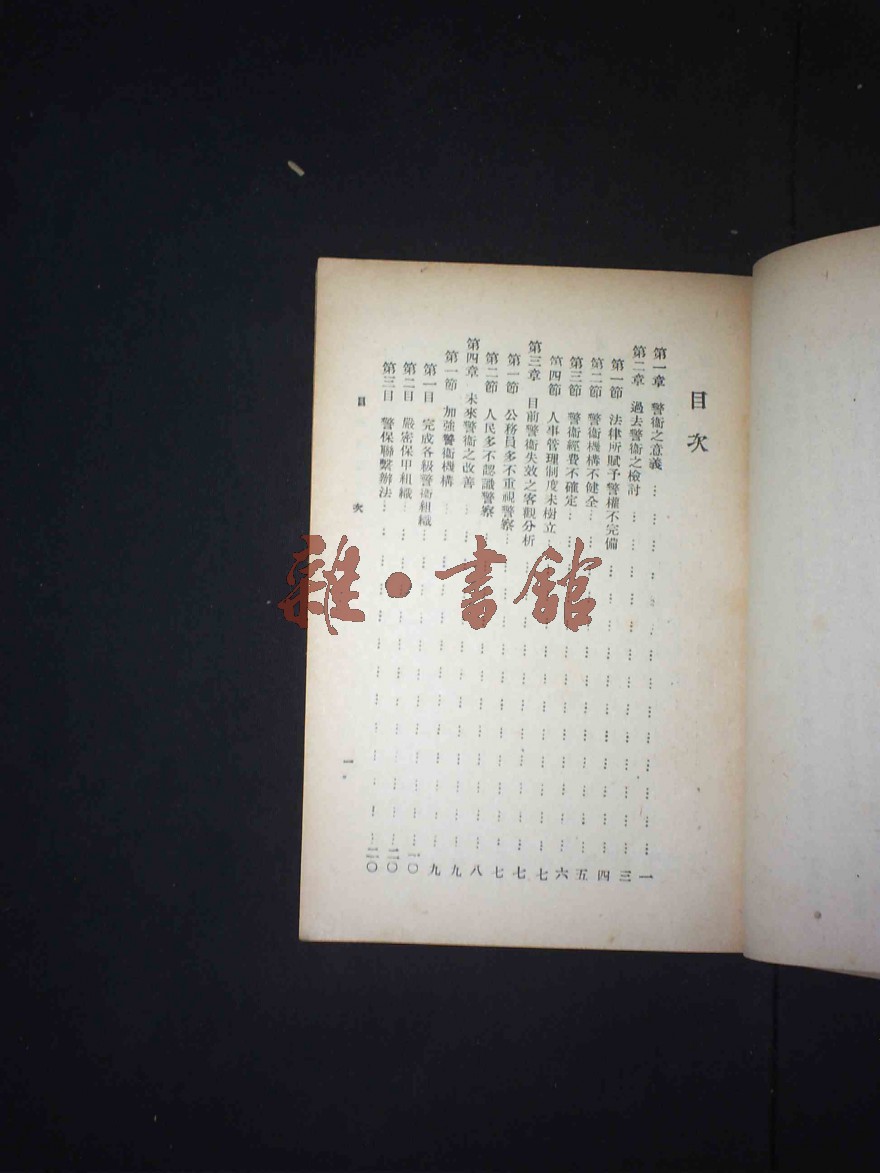 目次
第一章 警衛之意義 一
第二章 過去警衛之檢討 三
第一節 法律所賦予警權不完備 四
第二節 警衛機構不健全 五
第三節 警衛經費不確定 六
第四節 人事管理制度未樹立 七
第三章 目前警衛失效之客觀分析 七
第一節 公務員多不重視警察 七
第二節 人民多不認識警察 八
第四章 未來警衛之改善 九
第一節 加強警衛機構 九
第一目 完成各級警衛組織 一〇
第二目 嚴密保甲組織 二〇
第三目 警保聯繫辦法 二〇
目次 一
雜·書館